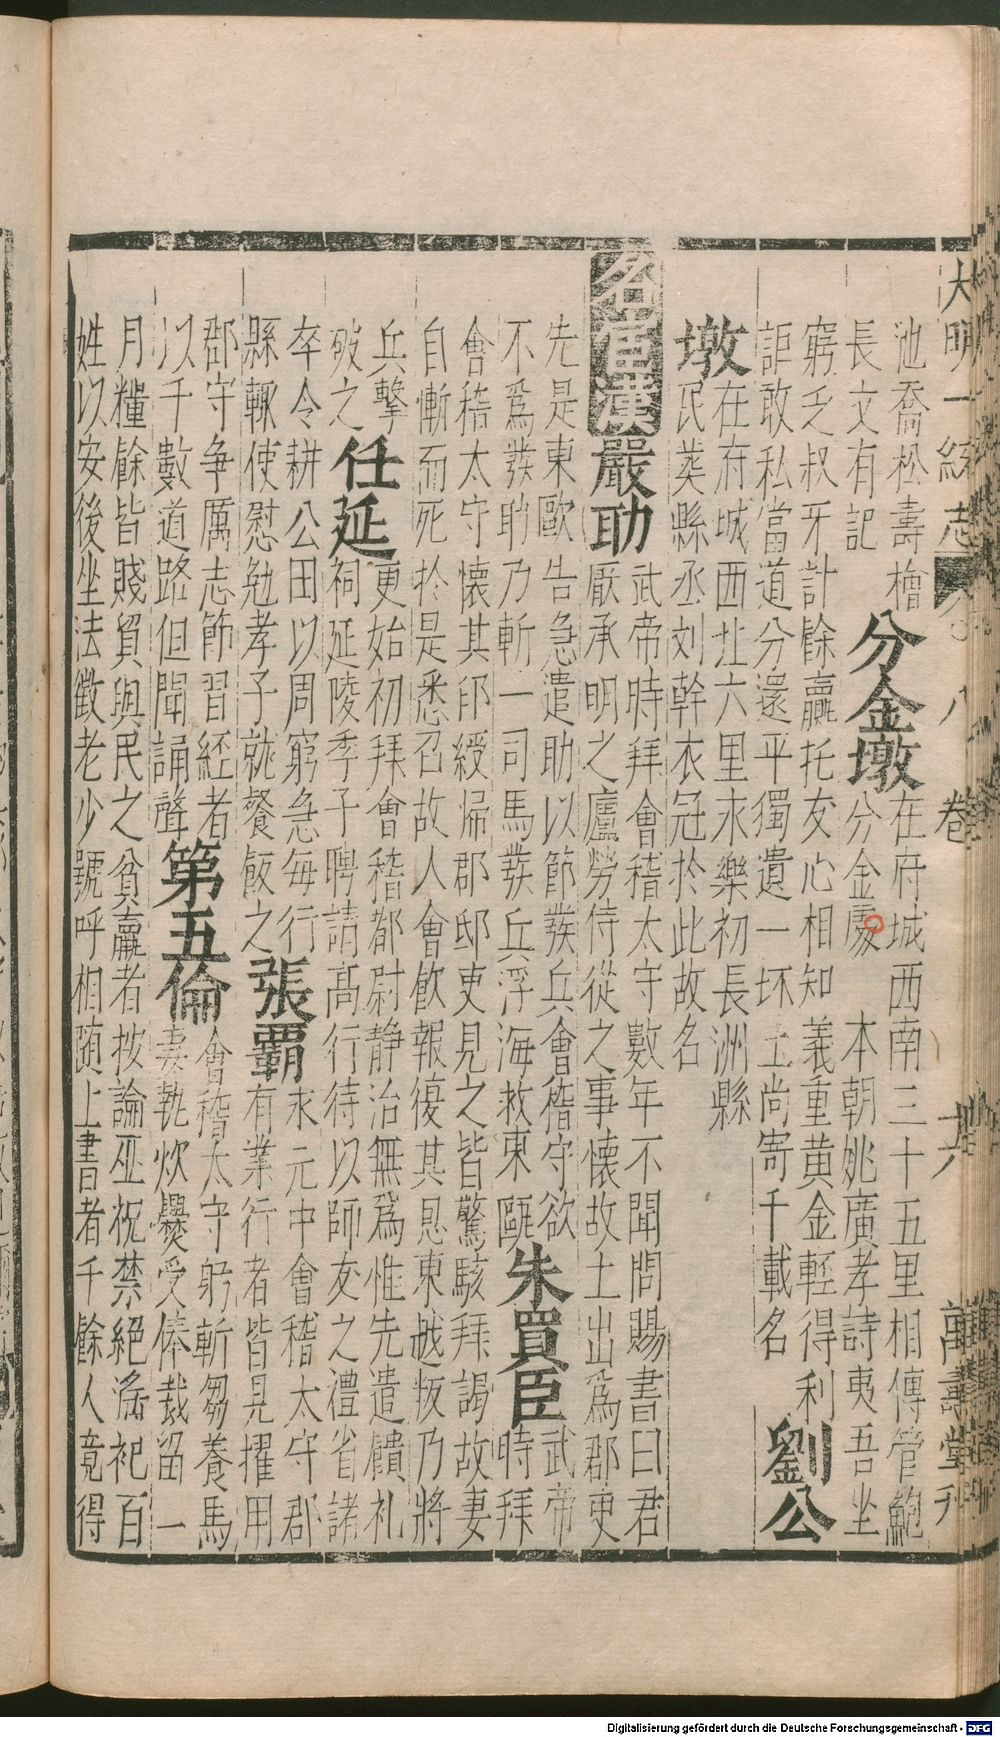 大明一統志 八卷 十六 萬壽堂刊
池喬松壽檜
長文有記
分金墩
在府城西南三十五里相傳管鮑
分金處 本朝姚廣孝詩夷吾坐
窮乏叔牙計餘贏托友心相知義重黄金輕得利
詎敢私當道分還平獨遺一坏土尚寄千載名
劉公
墩
在府城西北六里永樂初長洲縣
民葬縣丞刘幹衣冠於此故名
名宦漢嚴助
武帝時拜會稽太守數年不聞問賜書曰君
厭承明之廬勞侍從之事懷故土出為郡吏
先是東歐告急遣助以節發兵會稽守欲
不為發助乃斬一司馬發兵浮海救東甌
朱買臣
武帝
時拜
會稽太守懷其印綬歸郡邸吏見之皆驚駭拜謁故妻
自慚而死於是悉召故人會飲報復其恩東越叛乃將
兵擊
破之
任延
更始初拜會稽都尉静治無為惟先遣饋礼
祠延陵季子聘請高行待以師友之禮省諸
卒令耕公田以周窮急每行
縣輒使慰勉孝子就餐飯之
張霸
永元中會稽太守郡
有業行者皆見擢用
郡守争厲志節習經者
以千數道路但聞誦聲
第五倫
會稽太守躬斬芻養馬
妻執炊爨受俸裁留一
月糧餘皆賤貿與民之貧羸者按論巫祝禁絕淫祀百
姓以安後坐法徵老少號呼相随上書者千餘人竟得
Digitalisierung gefördert durch die Deutsche Forschungsgemeinschaft - DFG